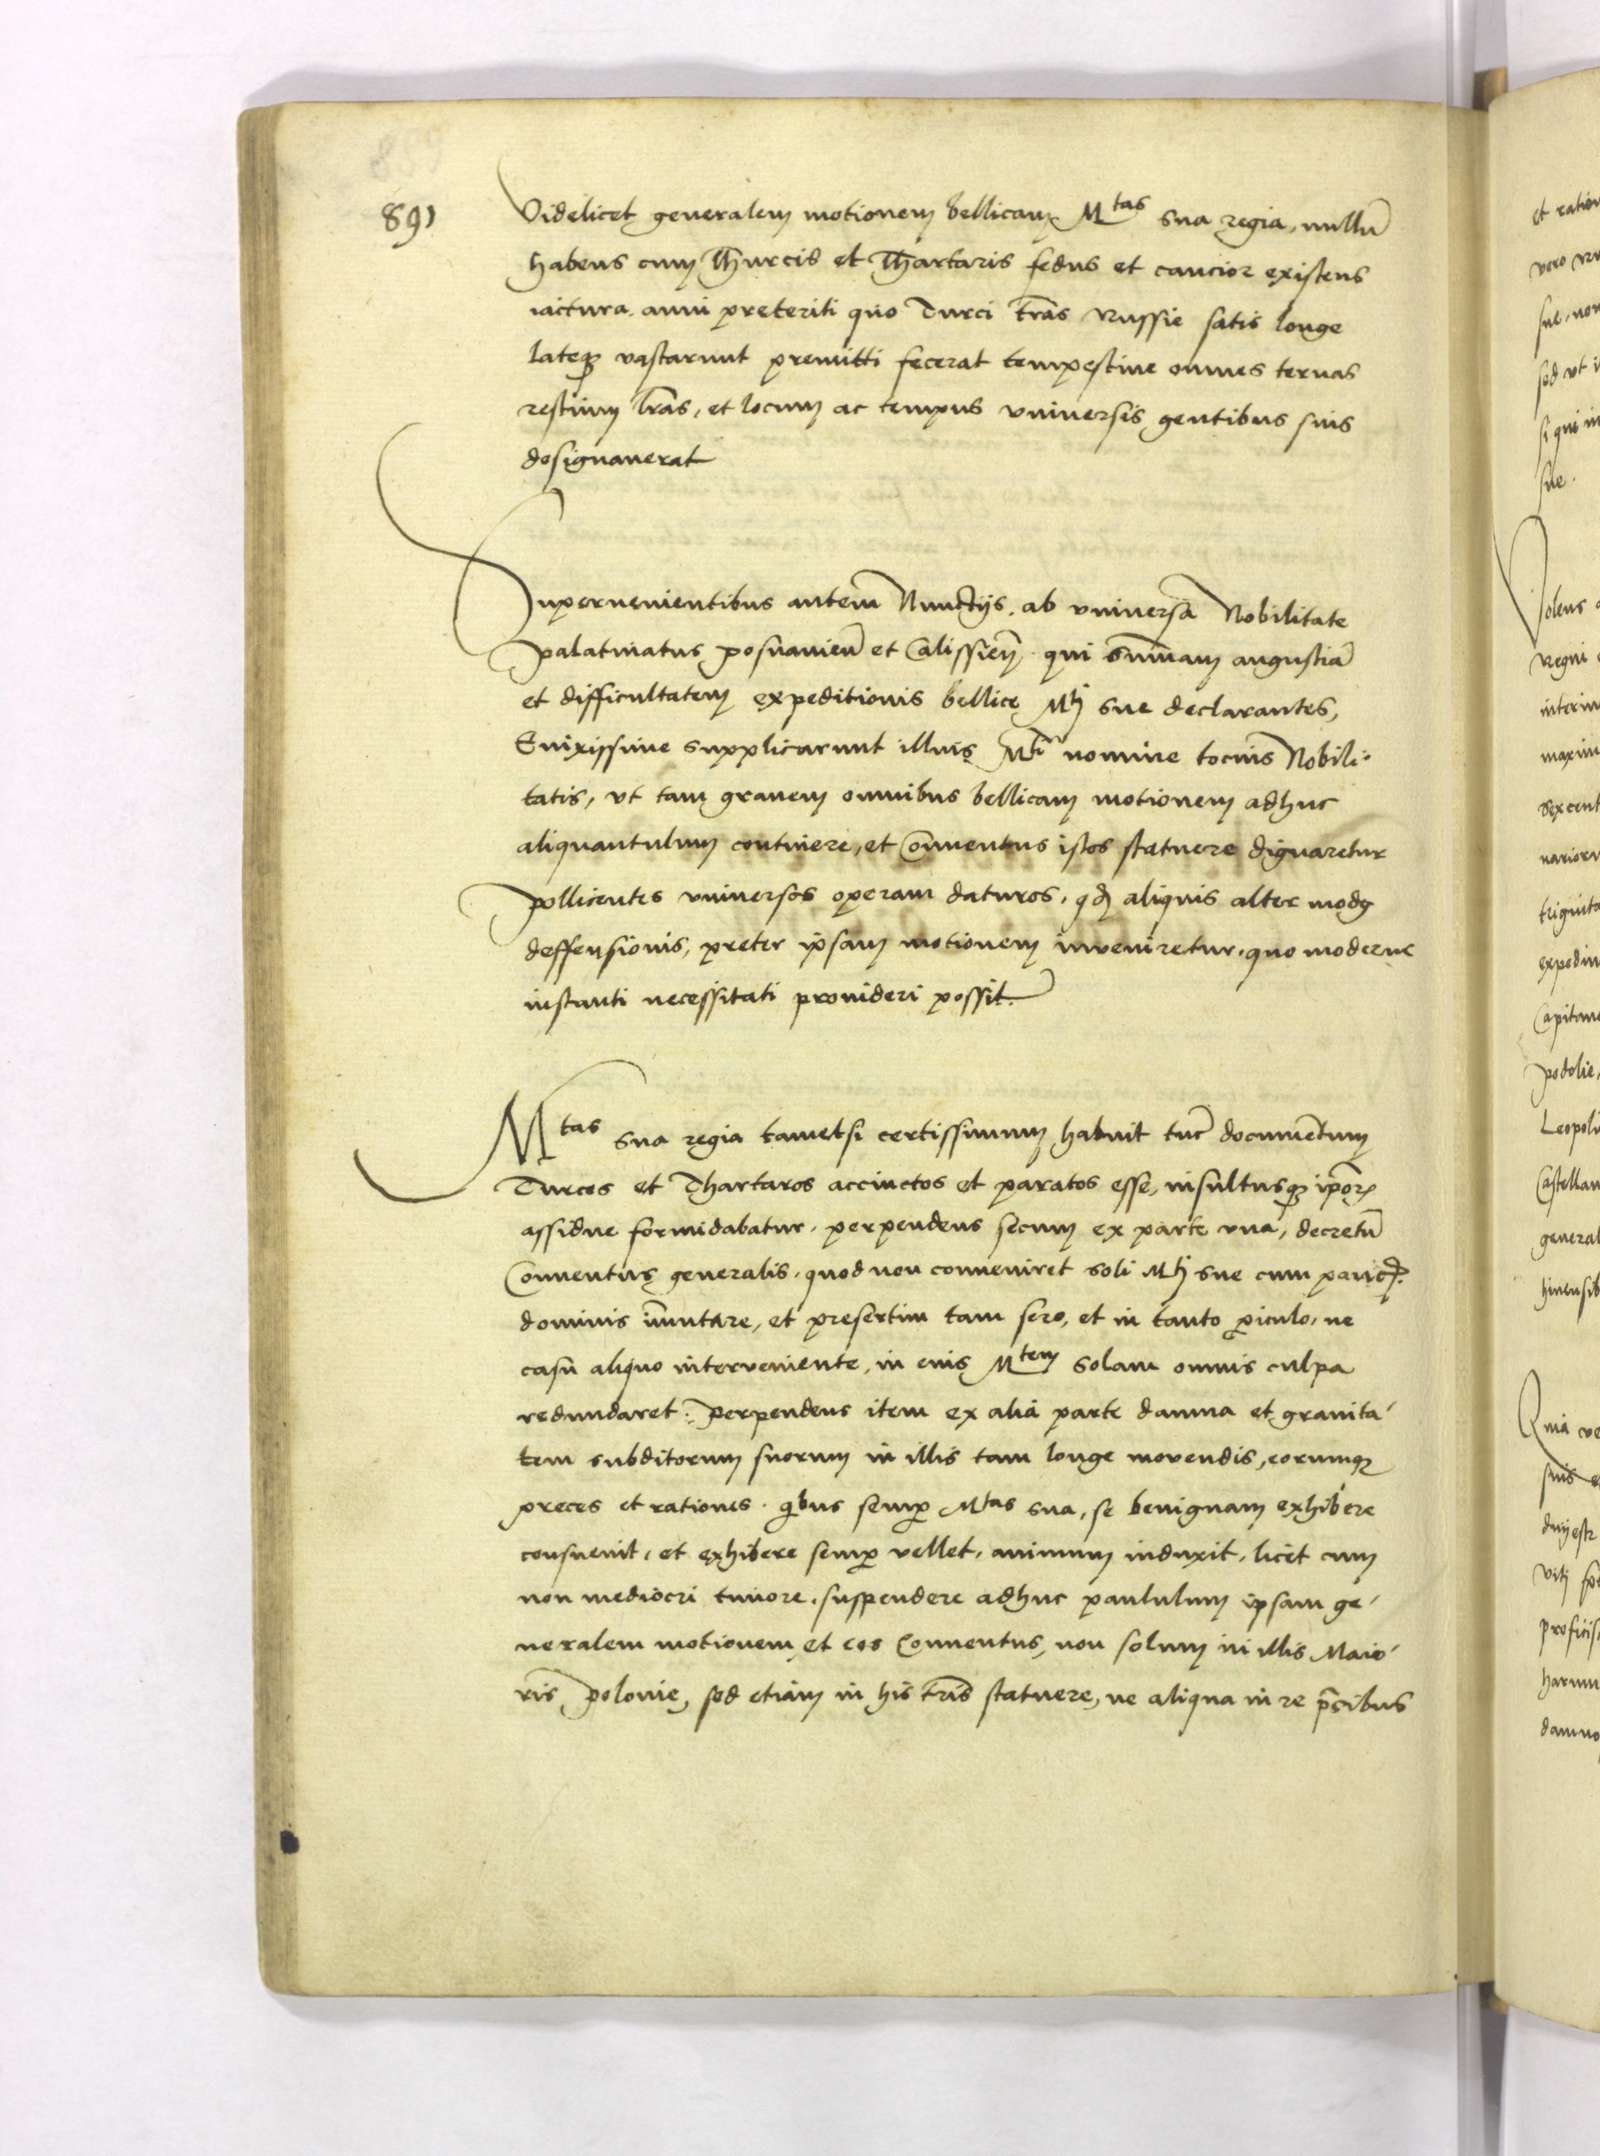 891
Videlicet generalem motionem bellicam Mtas sua regia, nullū
habens cum Thurcis et Thartaris fedus et caucior existens
iactura anni preteriti quo Turci t̄ras Russie satis longe
lateqꝫ vastarunt premitti fecerat tempestive omnes ternas
restium l̄ras, et locum ac tempus universis gentibus suis
designaverat
Supervenientibus autem Nunctijs, ab universa Nobilitate
palatinatus posnanien̄ et Calissien̄ qui sum̄am angustiā
et difficultatem expeditionis bellice Mti sue declarantes,
Enixissime supplicarunt illius Mti nomine tocius Nobili:
tatis, vt tam gravem omnibus bellicam motionem adhuc
aliquantulum continere, et Conventus istos statuere dignaretur
pollicentes universos operam daturos, qđ aliquis alter modꝰ
deffensionis, preter ipsam motionem inveniretur, quo moderne
instanti necessitati provideri possit.
Mtas sua regia tametsi certissimum habuit tūc documētum
Turcos et Thartaros accinctos et paratos esse, insultusqꝫ ip̄oꝝ
assidue formidabatur, perpendens secum ex parte vna, decretū
Conventus generalis, quod non conveniret soli Mti sue cum paucꝭ
dominis im̄utare, et presertim tam sero, et in tanto ꝑiculo, ne
casu aliquo interveniente, in eius Mtem solam omnis culpa
redundaret. Perpendens item ex alia parte damna et gravita-
tem subditorum suorum in illis tam longe movendis, eorumqꝫ
preces et rationes quibus semꝑ Mtas sua, se benignam exhibere
consuevit, et exhibere semꝑ vellet, animum induxit, licet cum
non mediocri timore, suspendere adhuc paululum ipsam ge-
neralem motionem, et eos Conventus, non solum in illis Maio-
ris polonie, sed etiam in his t̄ris statuere, ne aliqua in re p̄cibus